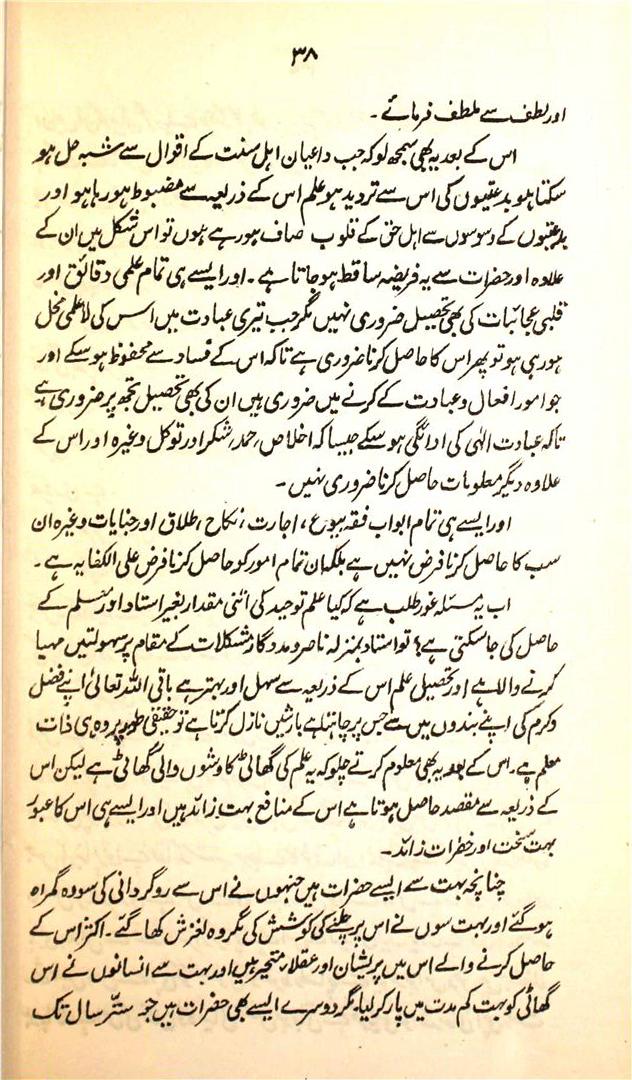 ۳۸
اور لطف سے ملطف فرمائے۔
اس کے بعد یہ بھی سمجھ لو کہ جب داعیان اہل سنت کے اقوال سے شبہ حل ہو
سکتا ہلو بدعتیوں کی اس سے تردید ہو علم اس کے ذریعہ سے مضبوط ہو رہا ہو اور
بدعتیوں کے وسوسوں سے اہل حق کے قلوب صاف ہو رہے ہوں تو اس شکل میں ان کے
علاوہ اور حضرات سے یہ فریضہ ساقط ہو جاتا ہے۔ اور ایسے ہی تمام علمی دقائق اور
قلبی عجائبات کی بھی تحصیل ضروری نہیں مگر جب تیری عبادت میں اس کی لاعلمی مخل
ہو رہی ہو تو پھر اس کا حاصل کرنا ضروری ہے تاکہ اس کے فساد سے محفوظ ہو سکے اور
جو امور افعال و عبادت کے کرنے میں ضروری ہیں ان کی بھی تحصیل تجھ پر ضروری ہے
تاکہ عبادت الٰہی کی ادائگی ہو سکے جیسا کہ اخلاص، حمد، شکر اور توکل وغیرہ اور اس کے
علاوہ دیگر معلومات حاصل کرنا ضروری نہیں۔
اور ایسے ہی تمام ابواب فقہ بیوع، اجارت، نکاح، طلاق اور جنایات وغیرہ ان
سب کا حاصل کرنا فرض نہیں ہے بلکہ ان تمام امور کو حاصل کرنا فرض علی الکفایہ ہے۔
اب یہ مسئلہ غور طلب ہے کہ کیا علم توحید کی اتنی مقدار بغیر استاد اور معلم کے
حاصل کی جا سکتی ہے؟ تو استاد بمنزلہ ناصر و مددگار مشکلات کے مقام پر سہولتیں مہیا
کرنے والا ہے اور تحصیل علم اس کے ذریعہ سے سہل اور بہتر ہے باقی اللہ تعالیٰ اپنے فضل
وکرم کی اپنے بندوں میں سے جس پر چاہتا ہے بارشیں نازل کرتا ہے تو حقیقی طور پر وہ ہی ذات
معلم ہے۔ اس کے بعد یہ بھی معلوم کرتے چلو کہ یہ علم کی گھاٹی کاوشوں والی گھاٹی ہے لیکن اس
کے ذریعہ سے مقصد حاصل ہوتا ہے اس کے منافع بہت زائد ہیں اور ایسے ہی اس کا عبور
بہت سخت اور خطرات زائد۔
چنانچہ بہت سے ایسے حضرات ہیں جنہوں نے اس سے روگردانی کی سو وہ گمراہ
ہو گئے اور بہت سوں نے اس پر چلنے کی کوشش کی مگر وہ لغزش کھا گئے۔ اکثر اس کے
حاصل کرنے والے اس میں پریشان اور عقلاء متحیر ہیں اور بہت سے انسانوں نے اس
گھاٹی کو بہت کم مدت میں پار کر لیا۔ مگر دوسرے ایسے بھی حضرات ہیں جو ستّر سال تک